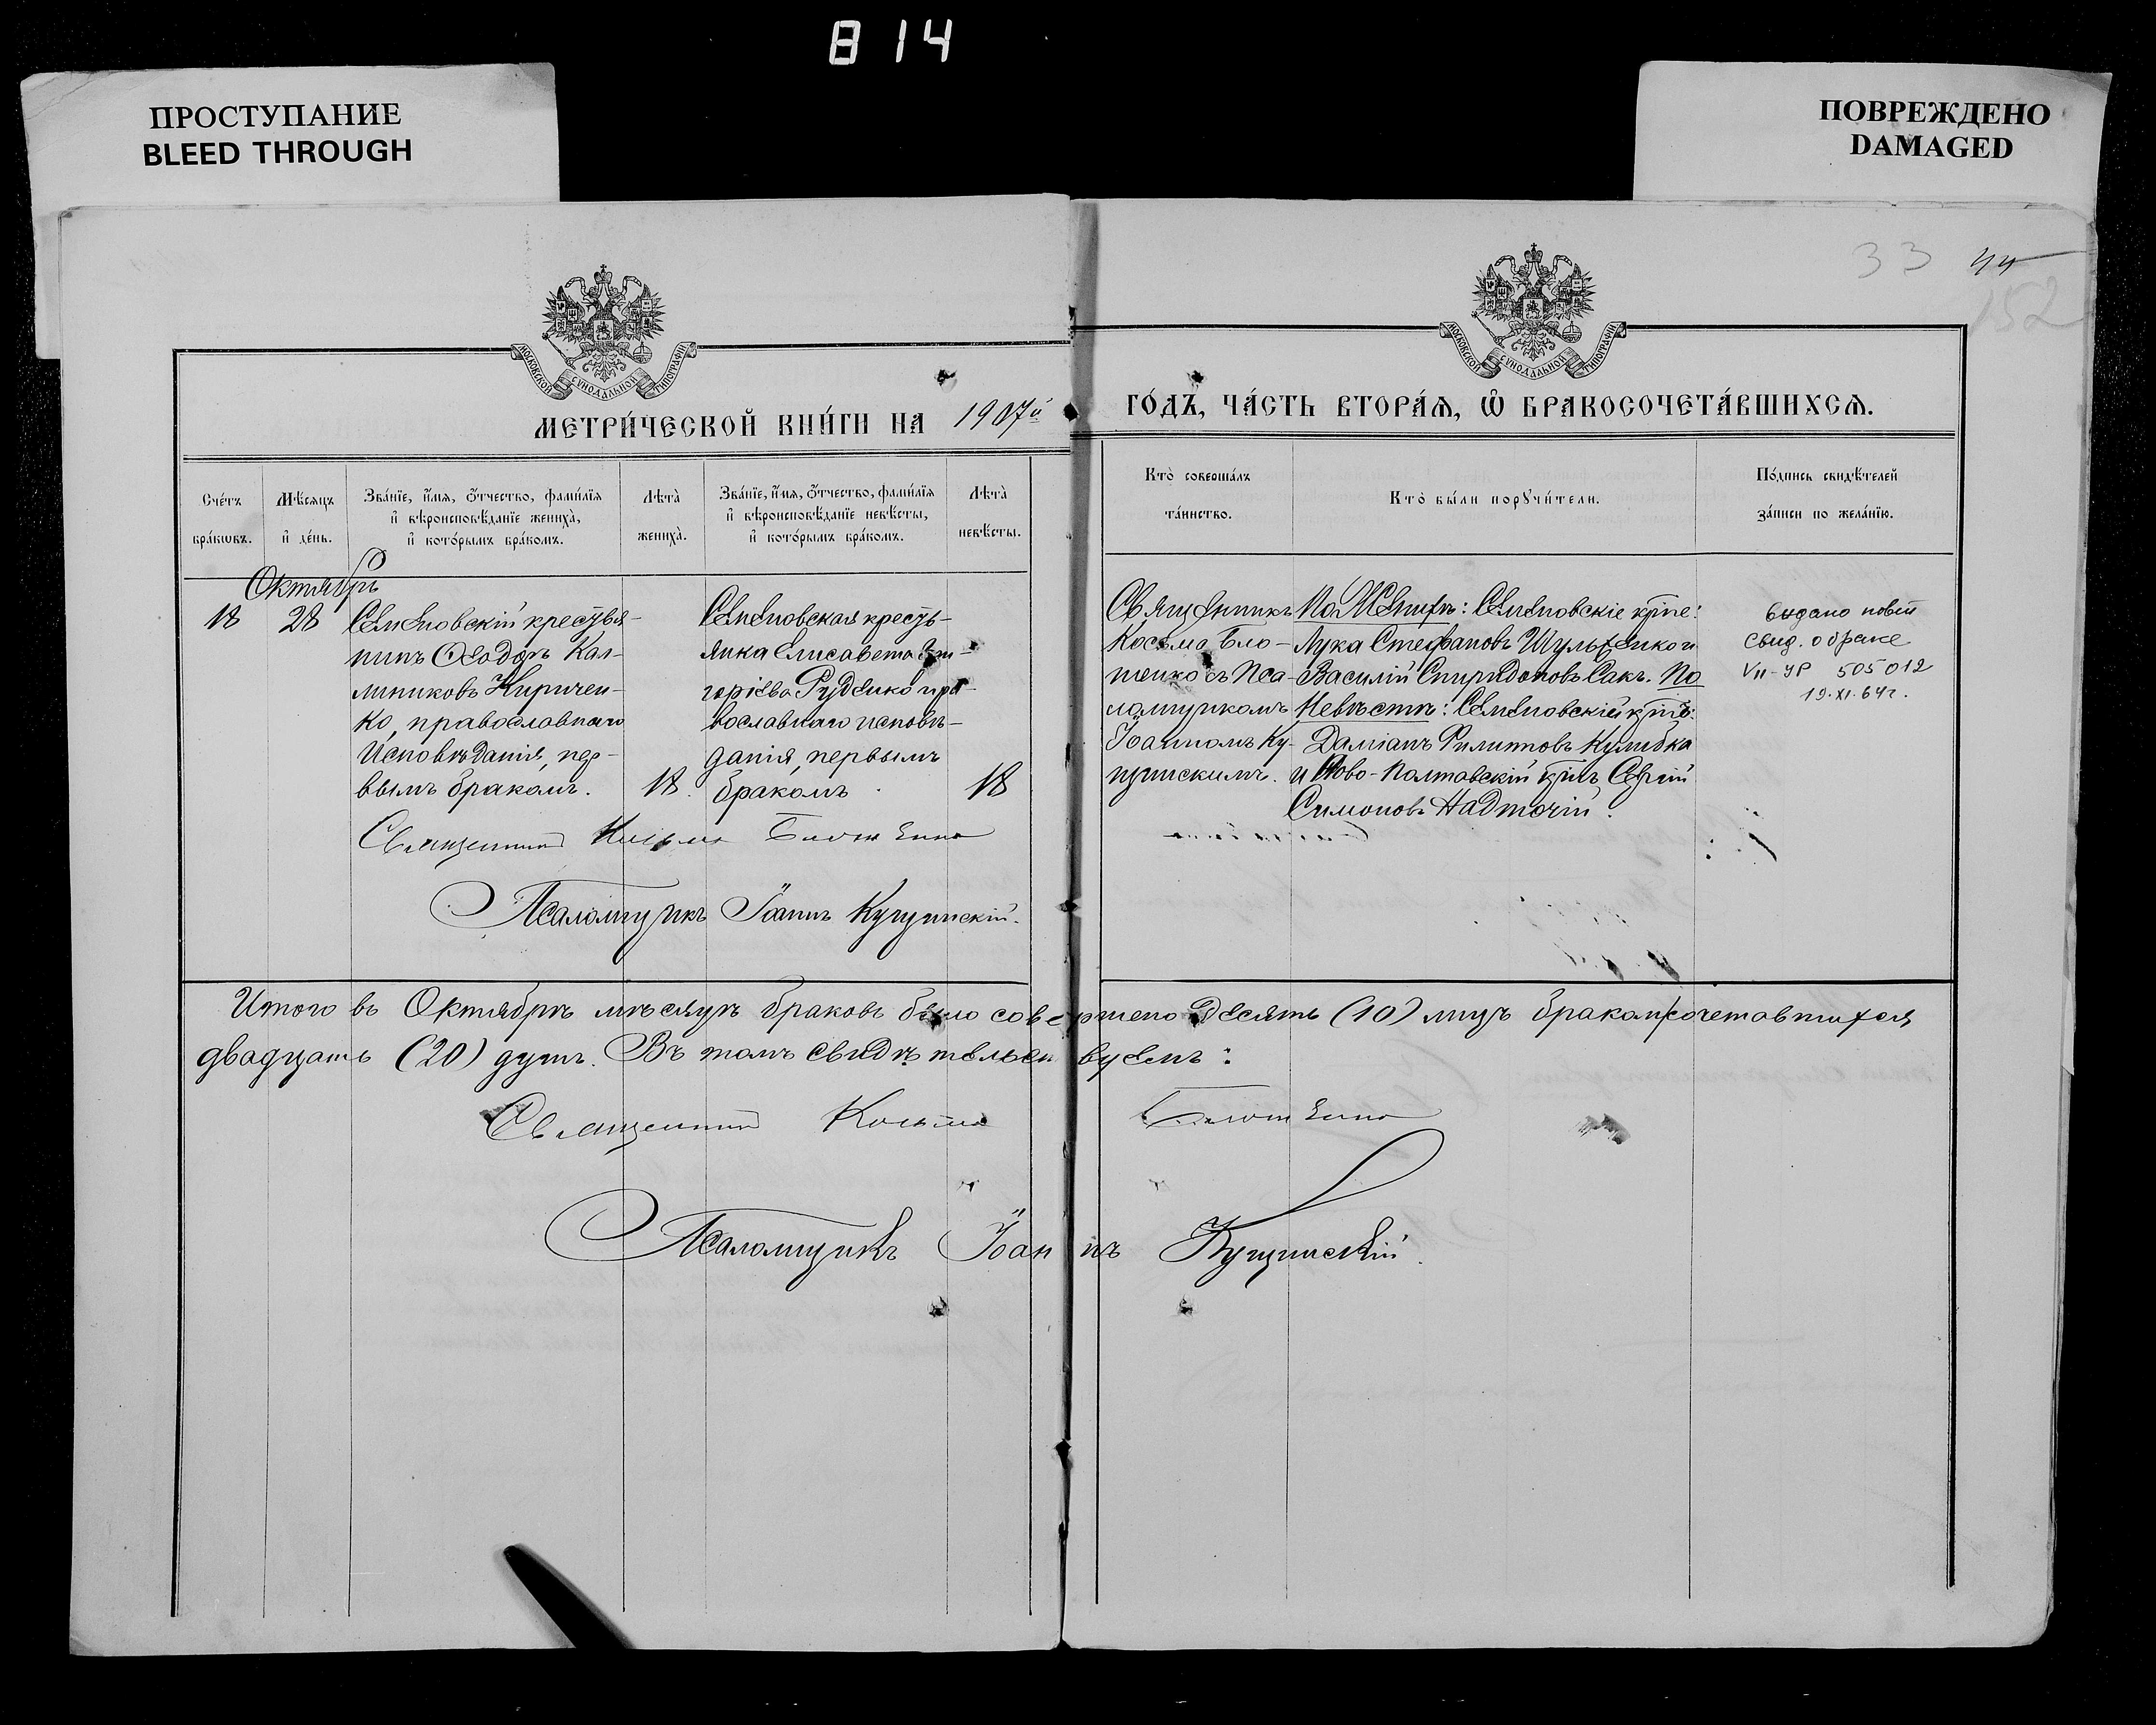 814
ПРОСТУПАНИЕ
BLEED THROUGH
ПОВРЕЖДЕНО
DAMAGED
33 44
152
МОСКОВСКОЙ СѴНОДАЛЬНОЙ ТИПОГРАФІИ
МОСКОВСКОЙ СѴНОДАЛЬНОЙ ТИПОГРАФІИ
МЕТРИ́ЧЕСКОЙ КНИ́ГИ НА 1907й
ГО́ДЪ, ЧА́СТЬ ВТОРА́Ѧ, Ѡ҆ БРАКОСОЧЕТА́ВШИХСѦ.
Сче́тъ
бра́кѡвъ.
Мѣ́сѧцъ
и҆ де́нь.
Зва́нїе, и҆́мѧ, ѻ҆́тчество, фами́лїѧ
и҆ вѣроисповѣ́данїе жениха̀,
и҆ кото́рымъ бра́комъ.
Лѣта̀
жениха̀.
Зва́нїе, и҆́мѧ, ѻ҆́тчество, фами́лїѧ
и҆ вѣроисповѣ́данїе невѣ́сты,
и҆ кото́рымъ бра́комъ.
Лѣта̀
невѣ́сты.
Кто̀ соверша́лъ
та́инство.
Кто̀ бы́ли порꙋчи́тели.
По́дпись свидѣ́телей
за́писи по жела́нїю.
Октябрь
18
28
Семеновскій крестья-
нинъ Ѳеодоръ Кал-
линиковъ Киричен-
ко, православнаго
исповѣданія, пер-
вымъ бракомъ.
18.
Семеновская кресть-
янка Елисавета Гри-
горіева Руденко пра-
вославнаго исповѣ-
данія, первымъ
бракомъ
18
Священникъ
Косьма Бло-
шенко съ Пса-
ломщикомъ
Іоанномъ Ку-
щинскимъ.
По Женихѣ: Семеновскіе крѣне:
Лука Стефановъ Шульженко и
Василій Спиридоновъ Сакъ. По
Невѣстѣ: Семеновскій крнъ:
Даміанъ Филиповъ Кулибка
и Ново-Полтавскій крнъ Сергій
Симоновъ Надточій.
выдано повт
свид. о браке
VII-УР 505012
19.XI.64г.
Священникъ Косьма Блошенко
Псаломщикъ Іоаннъ Кущинскій.
Итого въ Октябрѣ мѣсяцѣ браковъ было совершено десять (10) лицъ бракомъ сочетавшихся
двадцать (20) душъ. Въ томъ свидѣтельствуемъ:
Священникъ Косьма Блошенко
Псаломщикъ Іоаннъ Кущинскій.